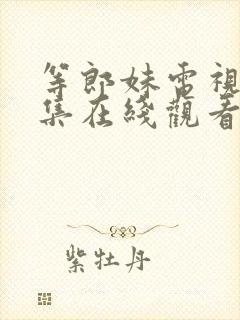 等郎妹電視
集在綫觀看
紫牡丹